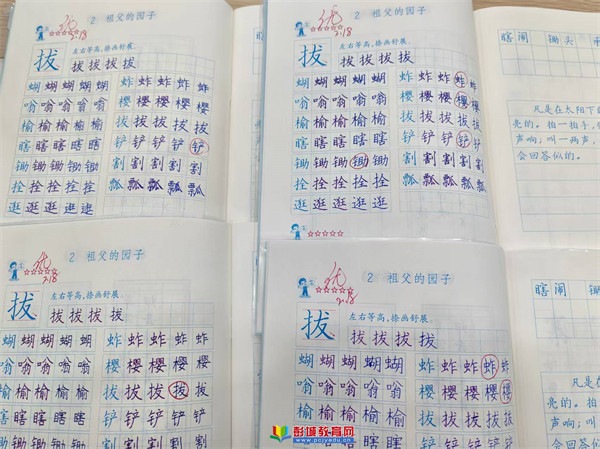 优
2.18
2 祖父的园子
左右等高,捺画舒展.
拔 拔 拔 拔 拔
蝴 蝴 蝴 蝴 蝴 蚱 蚱 蚱 蚱 蚱
嗡 嗡 嗡 嗡 嗡 樱 樱 樱 樱 樱
榆 榆 榆 榆 榆 拔 拔 拔 拔 拔
瞎 瞎 瞎 瞎 瞎 铲 铲 铲 铲 铲
锄 锄 锄 锄 锄 割 割 割 割 割
拴 拴 拴 拴 拴 瓢 瓢 瓢 瓢 瓢
逛 逛 逛 逛 逛
优
2.18
2 祖父的园子
左右等高,捺画舒展.
拔 拔 拔 拔 拔
蝴 蝴 蝴 蝴 蝴 蚱 蚱 蚱 蚱 蚱
嗡 嗡 嗡 嗡 嗡 樱 樱 樱 樱 樱
榆 榆 榆 榆 榆 拔 拔 拔 拔 拔
瞎 瞎 瞎 瞎 瞎 铲 铲 铲 铲 铲
锄 锄 锄 锄 锄 割 割 割 割 割
拴 拴 拴 拴 拴 瓢 瓢 瓢 瓢 瓢
逛 逛 逛 逛 逛
瞎闹 锄头
凡是在太阳下
亮的。拍一拍手,
声响;叫一两声,
会回答似的。
优
2.18
2 祖父的园子
左右等高,捺画舒展.
拔 拔 拔 拔 拔
蝴 蝴 蝴 蝴 蝴 蚱 蚱 蚱 蚱 蚱
嗡 嗡 嗡 嗡 嗡 樱 樱 樱 樱 樱
榆 榆 榆 榆 榆 拔 拔 拔 拔 拔
瞎 瞎 瞎 瞎 瞎 铲 铲 铲 铲 铲
锄 锄 锄 锄 锄 割 割 割 割 割
优
2.18
2 祖父的园子
左右等高,捺画舒展.
拔 拔 拔 拔 拔
蝴 蝴 蝴 蝴 蝴 蚱 蚱 蚱 蚱 蚱
嗡 嗡 嗡 嗡 嗡 樱 樱 樱 樱 樱
榆 榆 榆 榆 榆 拔 拔 拔 拔 拔
瞎 瞎 瞎 瞎 瞎 铲 铲 铲 铲 铲
瞎闹
凡是在
亮的。拍一
声响;叫一
会回答似
彭城教育网
www.pcjyedu.cn